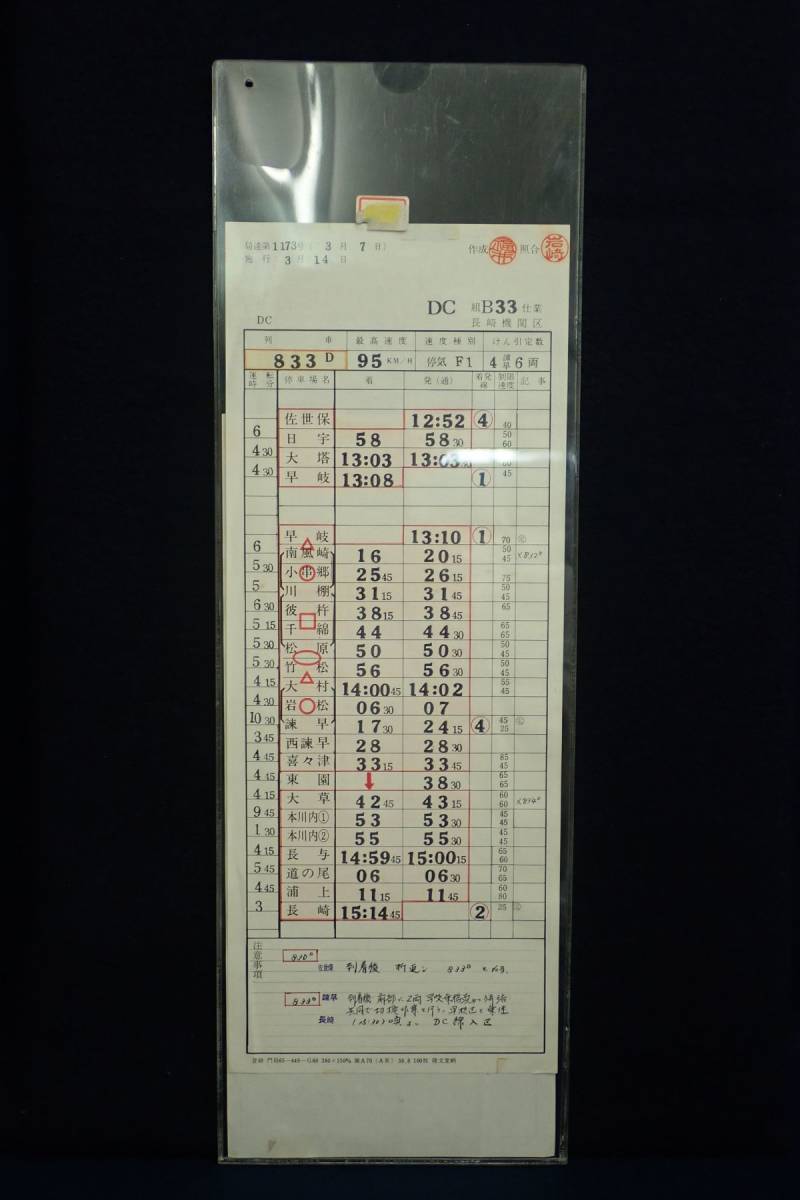 局達第1173号( 3月 7日)
施行 3月 14日
作成 照合 岩崎
DC 組B33仕業
長崎機関区
DC
列 車 最高速度 速度種別 けん引定数
833D 95KM/H 停気 F1 4 諫早 6両
運転時分 停車場名 着 発(通) 着発線 制限速度 記事
佐世保 12:52 ④ 40
6 日宇 58 58 30 50 60
4 30 大塔 13:03 13:03 30 60
4 30 早岐 13:08 ① 45
早岐 13:10 ① 70
6 南風崎 16 20 15 50 45
5 30 小串郷 25 45 26 15 75
5 川棚 31 15 31 45 50 45
6 30 彼杵 38 15 38 45 65
5 15 千綿 44 44 30 65 65
5 30 松原 50 50 30 50 45
5 30 竹松 56 56 30 50 45
4 15 大村 14:00 45 14:02 55 45
4 30 岩松 06 30 07
10 30 諫早 17 30 24 15 ④ 45 25
3 45 西諫早 28 28 30
4 45 喜々津 33 15 33 45 85 45
4 45 東園 ↓ 38 30 65 65
4 15 大草 42 45 43 15 60 60
9 45 本川内① 53 53 30 45 45
1 30 本川内② 55 55 30 45 45
4 15 長与 14:59 45 15:00 15 65 60
5 45 道の尾 06 06 30 70 65
4 45 浦上 11 15 11 45 60 80
3 長崎 15:14 45 ② 25
注意事項
830D
佐世保 到着後 折返し 833D となる。
833D 諫早 到着後 前部に2両
長崎 DC